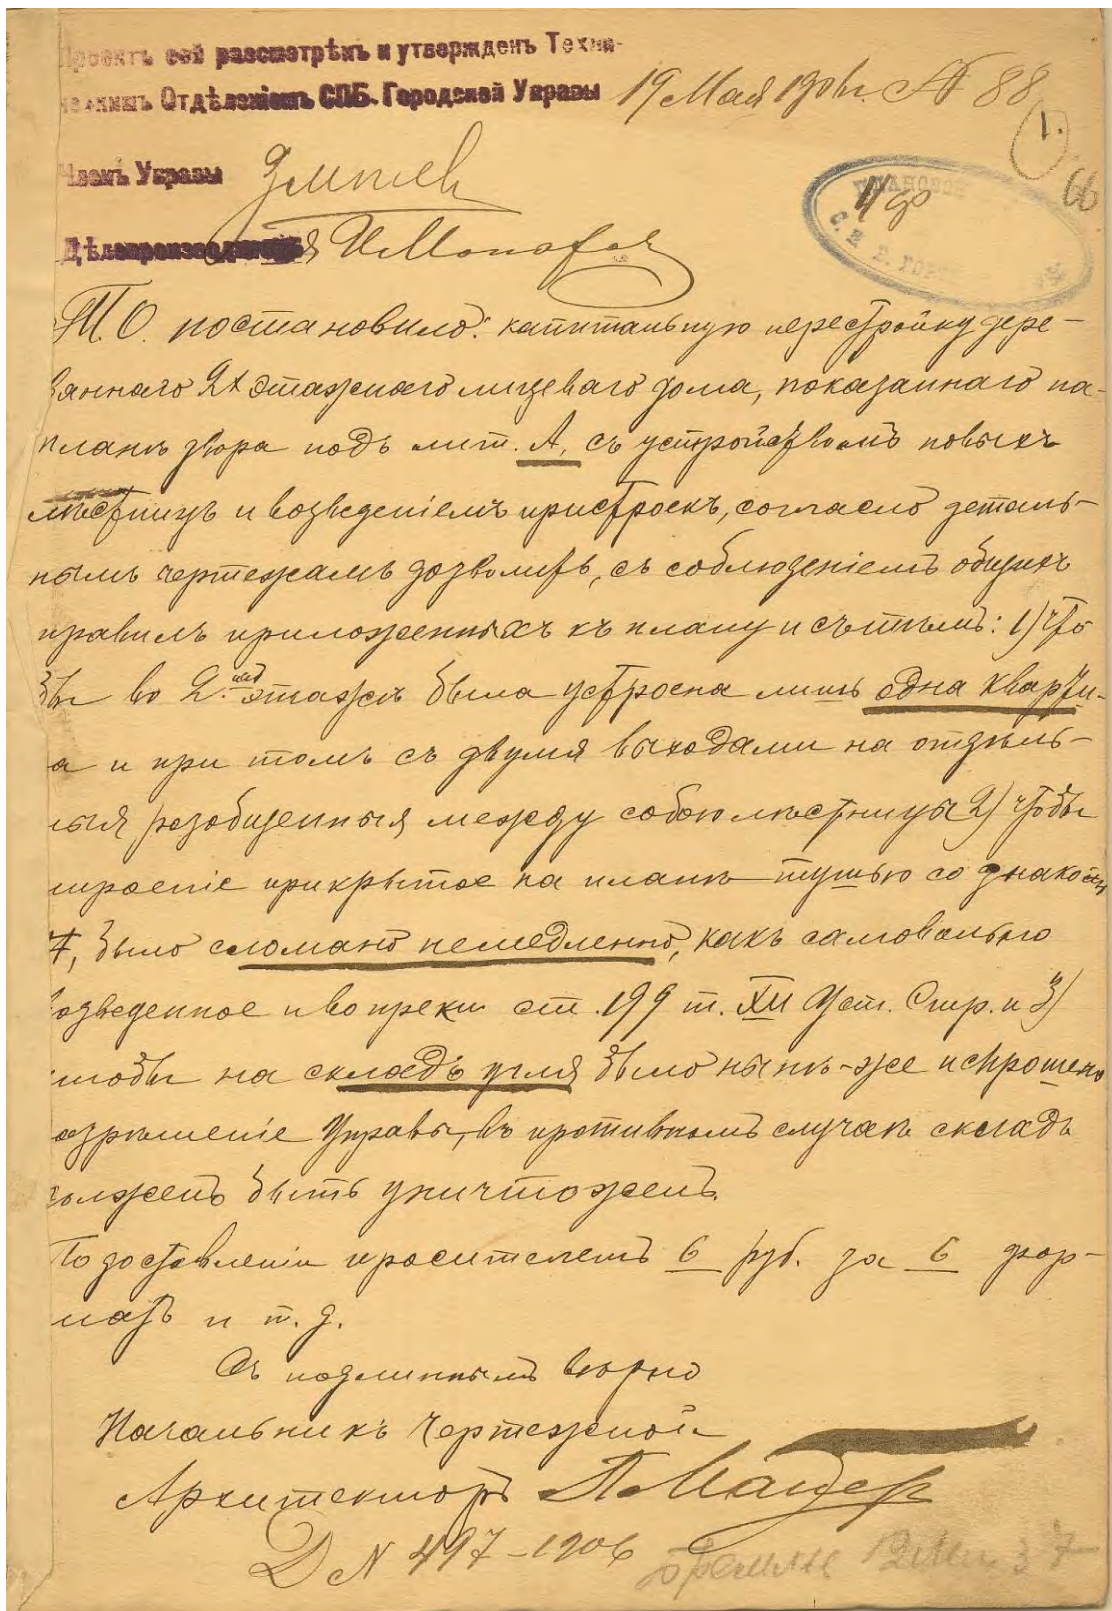 Проектъ сей разсмотрѣнъ и утвержденъ Техни-
ческимъ Отдѣленіемъ СПБ. Городской Управы 19 Мая 1906 г. № 88
1.
66
Членъ Управы
Дѣлопроизводитель
Т.О. постановило: капитальную перестройку дере-
вяннаго 2х этажнаго лицеваго дома, показаннаго на
планѣ двора подъ лит. А, съ устройствомъ новыхъ
лѣстницъ и возведеніемъ пристроекъ, согласно деталь-
нымъ чертежамъ дозволить, съ соблюденіемъ общихъ
правилъ приложенныхъ къ плану и съ тѣмъ: 1) что
бы во 2мъ этажѣ была устроена лишь одна кварти-
а и при томъ съ двумя выходами на отдѣль-
ныя разобщенныя между собою лѣстницы 2) чтобы
строеніе прикрытое на планѣ тушью со знакомъ
7, было сломано немедленно, какъ самовольно
возведенное и вопреки ст. 199 т. XII Уст. Стр. и 3)
чтобы на складъ угля было нынѣ-же испрошено
разрѣшеніе Управы, въ противномъ случаѣ складъ
долженъ быть уничтоженъ.
По доставленіи просителемъ 6 руб. за 6 фор-
матъ и т. д.
Съ подлиннымъ вѣрно
Начальникъ Чертежной
Архитекторъ
Д № 497-1906